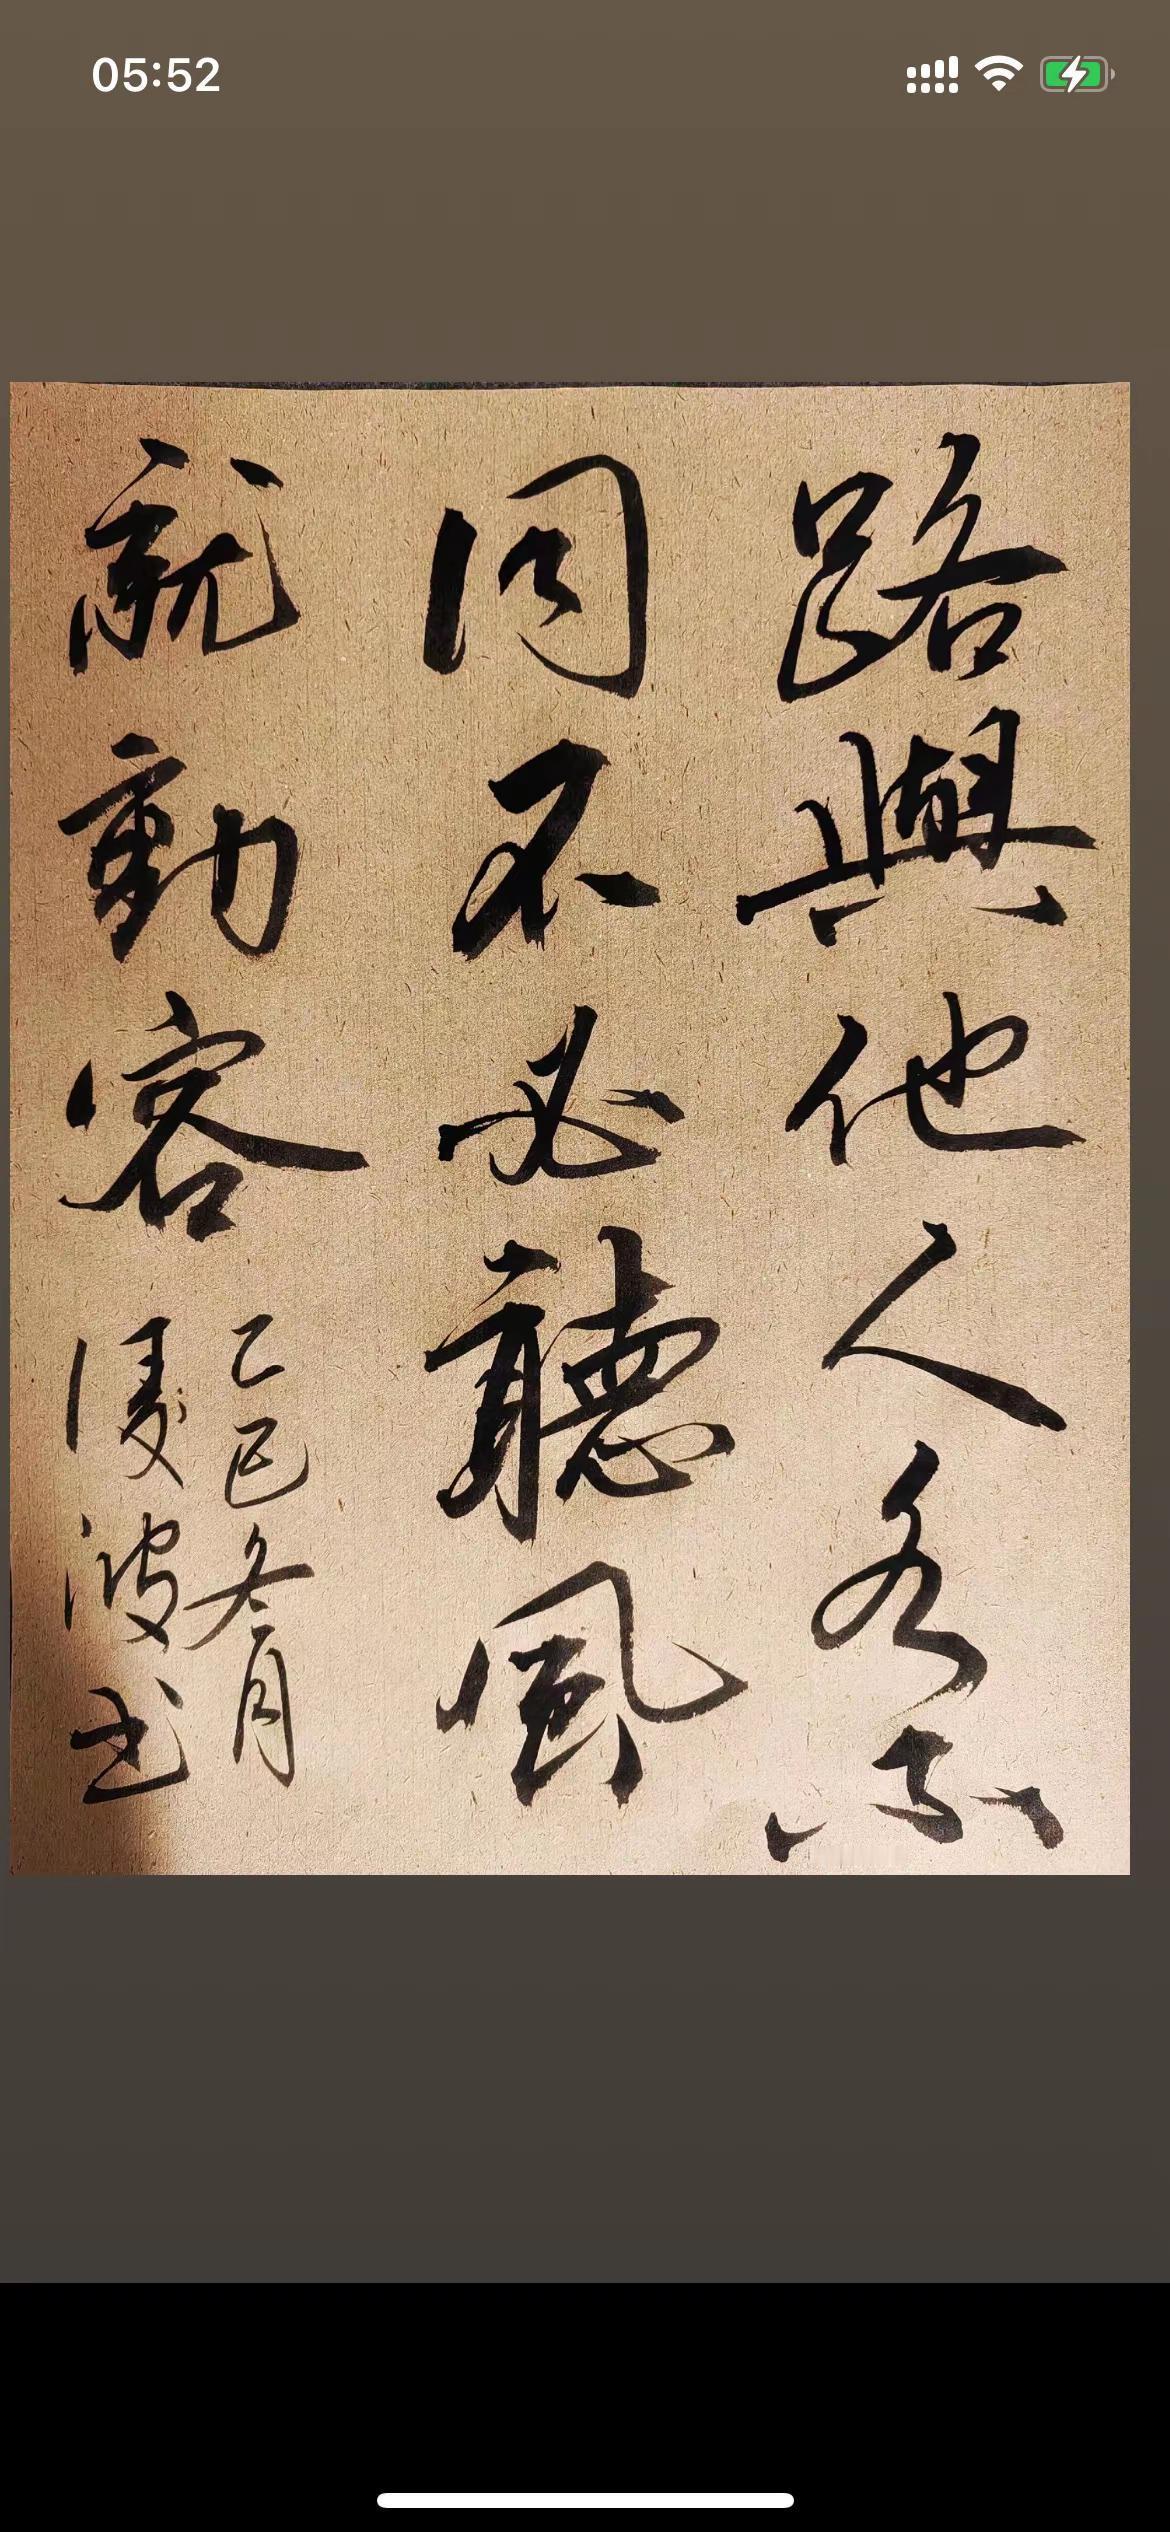 05:52
路與他人各不
同不必聽風
就動容
乙巳冬月
波书